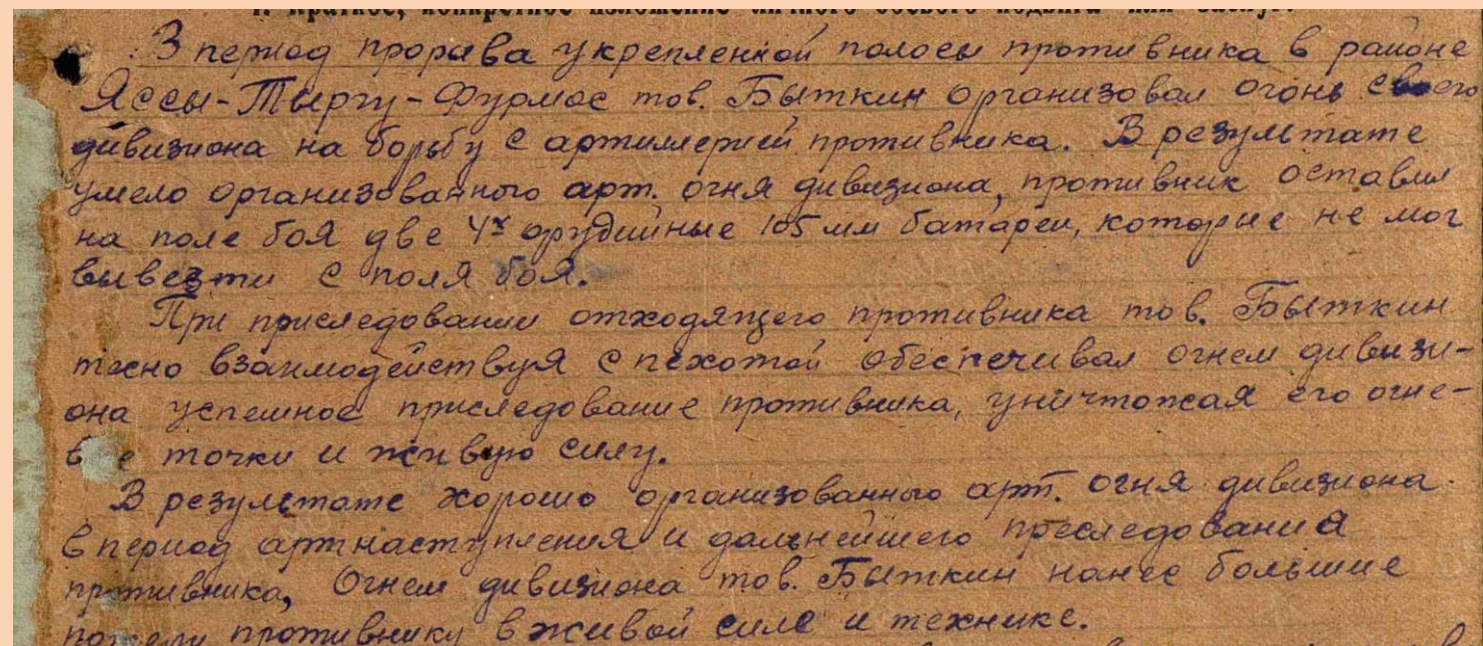 1. Краткое, конкретное изложение личного боевого подвига или заслуг.
В период прорыва укрепленной полосы противника в районе
Яссы-Тыргу-Фурмос тов. Быткин организовал огонь своего
дивизиона на борьбу с артиллерией противника. В результате
умело организованного арт. огня дивизиона, противник оставил
на поле боя две 4х орудийные 105 мм батареи, которые не мог
вывезти с поля боя.
При приследовании отходящего противника тов. Быткин
тесно взаимодействуя с пехотой обеспечивал огнем дивизи-
она успешное приследование противника, уничтожая его огне-
вые точки и живую силу.
В результате хорошо организованного арт. огня дивизиона
в период артнаступления и дальнейшего преследования
противника, Огнем дивизиона тов. Быткин нанес большие
потери противнику в живой силе и технике.